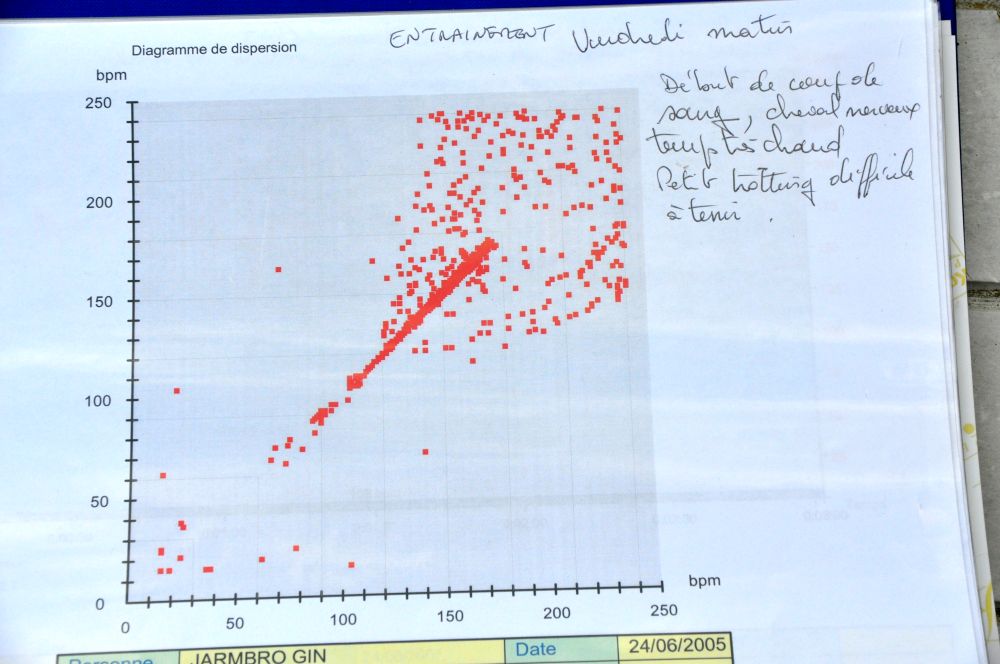 Diagramme de dispersion
ENTRAINEMENT Vendredi matin
bpm
Début de coup de
sang, cheval nerveux
temps très chaud
Petit trotting difficile
à tenir.
250
200
150
100
50
0
bpm
0 50 100 150 200 250
Personne JARMBRO GIN Date 24/06/2005